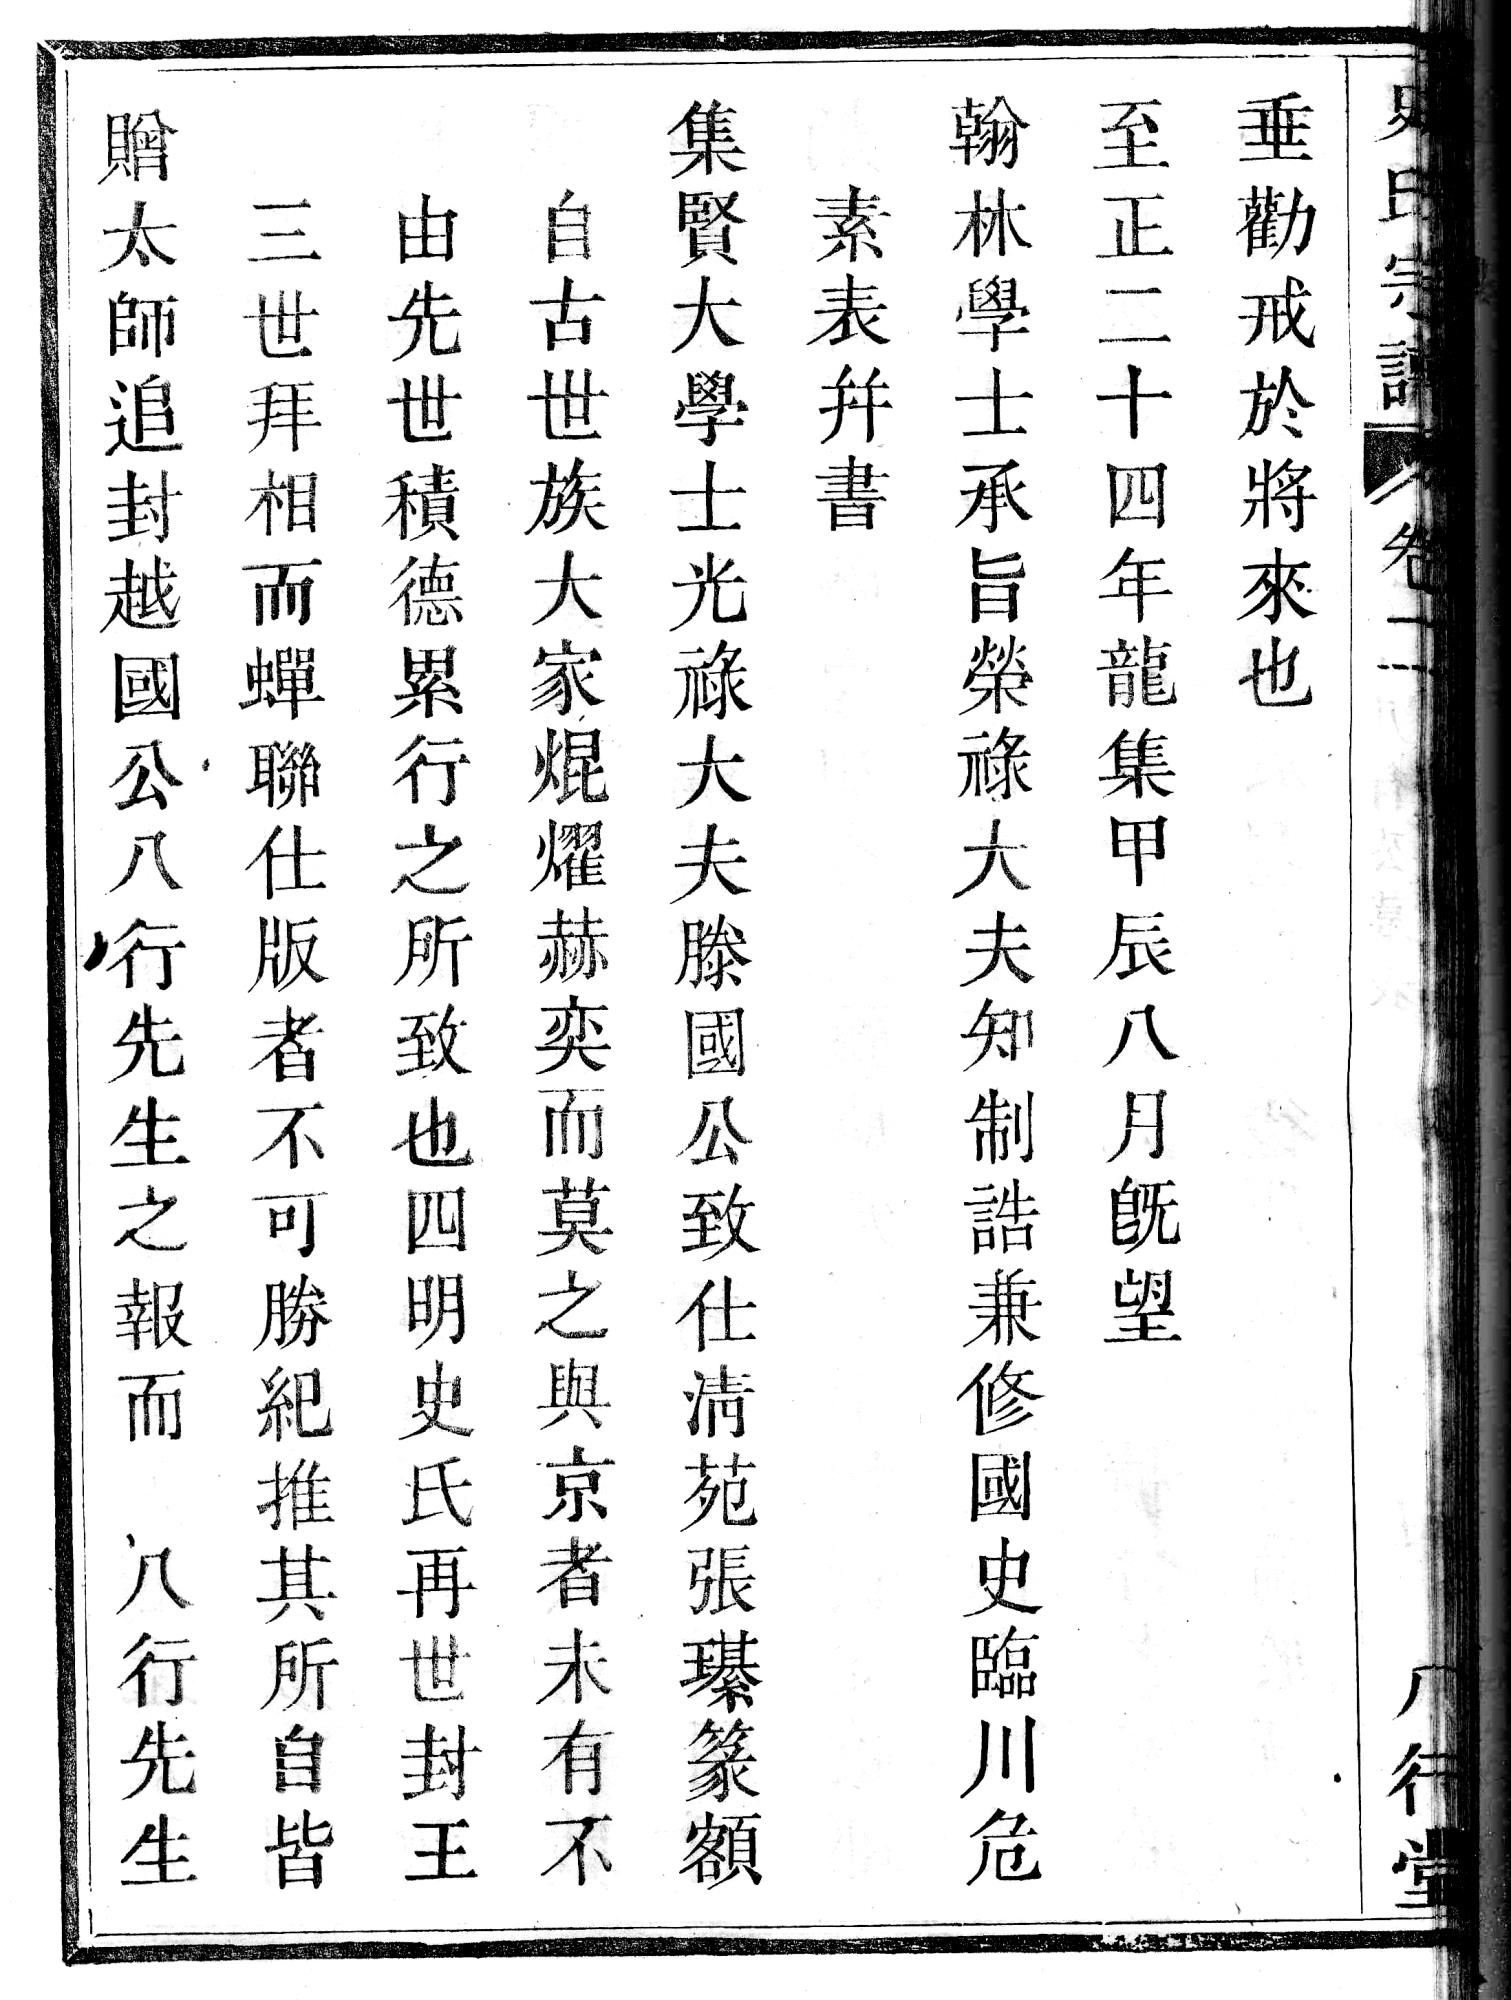 史氏宗譜 卷二 八行堂
垂勸戒於將來也
至正二十四年龍集甲辰八月旣望
翰林學士承旨榮祿大夫知制誥兼修國史臨川危
素表幷書
集賢大學士光祿大夫滕國公致仕淸苑張璂篆額
自古世族大家焜燿赫奕而莫之與京者未有不
由先世積德累行之所致也四明史氏再世封王
三世拜相而蟬聯仕版者不可勝紀推其所自皆
贈太師追封越國公八行先生之報而 八行先生